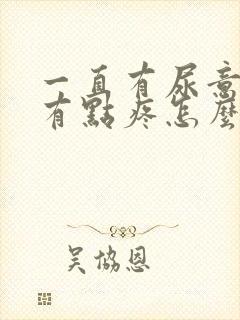 一直有尿意
有點疼怎麼
吳協恩